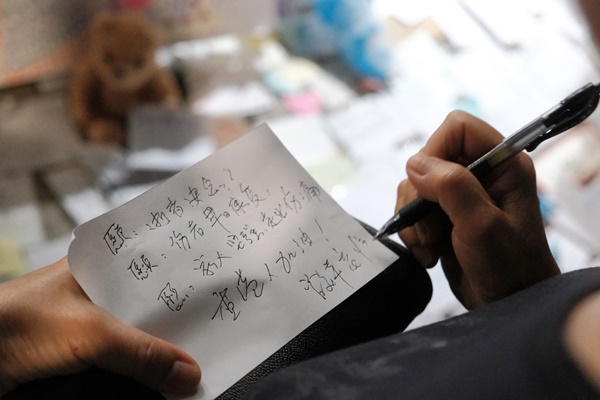 願：逝者安息？
願：伤者早日康復
願：家人堅強走出伤痛
香港人加油！